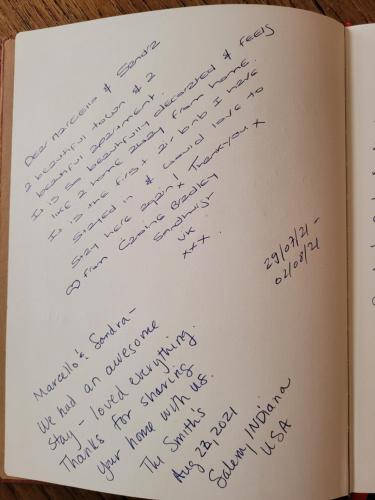 Dear Marcello & Sandra
a beautiful town & a
beautiful apartment.
It is so beautifully decorated & feels
like a home away from home.
It is the first air bnb I have
stayed in & would love to
stay here again! Thankyou x
from Bradley
UK.
xxx
29/07/21 -
02/08/21
Marcello & Sandra -
We had an awesome
stay - loved everything.
Thanks for sharing
your home with us.
The Smith's
Aug 2021
Salem, INdiana
USA